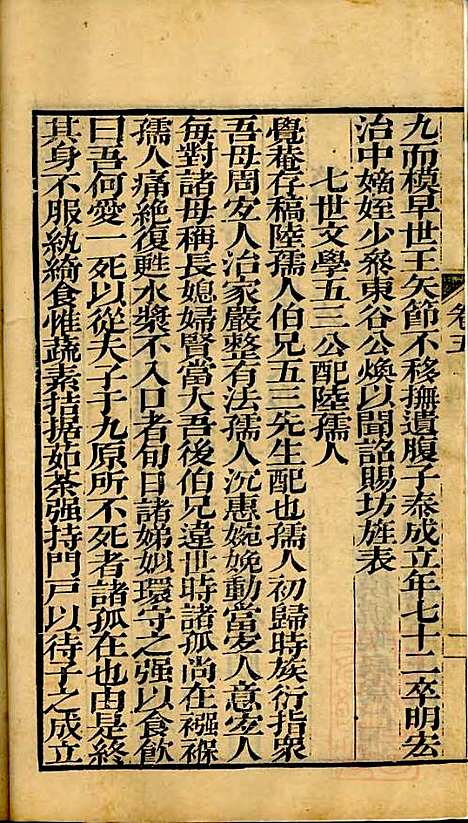 卷五
九而模早世王矢節不移撫遺腹子泰成立年七十二卒明宏
治中嫡姪少叅東谷公煥以聞詔賜坊旌表
七世文學五三公配陸孺人
覺菴存稿陸孺人伯兄五三先生配也孺人初歸時族衍指衆
吾母周安人治家嚴整有法孺人沉惠婉娩動當安人意安人
每對諸母稱長媳婦賢當大吾後伯兄違世時諸孤尚在襁褓
孺人痛絶復甦水漿不入口者旬日諸娣姒環守之强以食飲
曰吾何愛一死以從夫子于九原所不死者諸孤在也由是終
其身不服紈綺食惟蔬素拮据如荼强持門戸以待子之成立